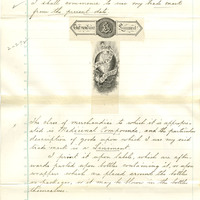 I shall commence to use my trade mark
from the present date.
Liniment
The class of merchandise to which it is appropri-
ated is Medicinal Compounds and the particular
description of goods upon which I use my said
trade mark is a Liniment.
I print it upon labels, which are after-
wards pasted upon bottles containing it, or upon
wrappers which are placed around the bottles
or packages, or it may be blown in the bottles
themselves.